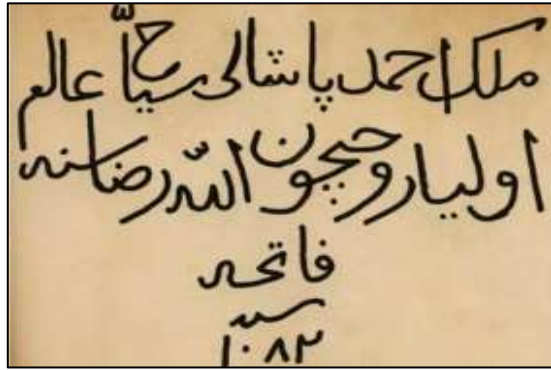 ملك احمد پاشالی سیّاح عالم
اولیا روحیچون اللّه رضاسنه
فاتحه
سنه
١٠٨٢